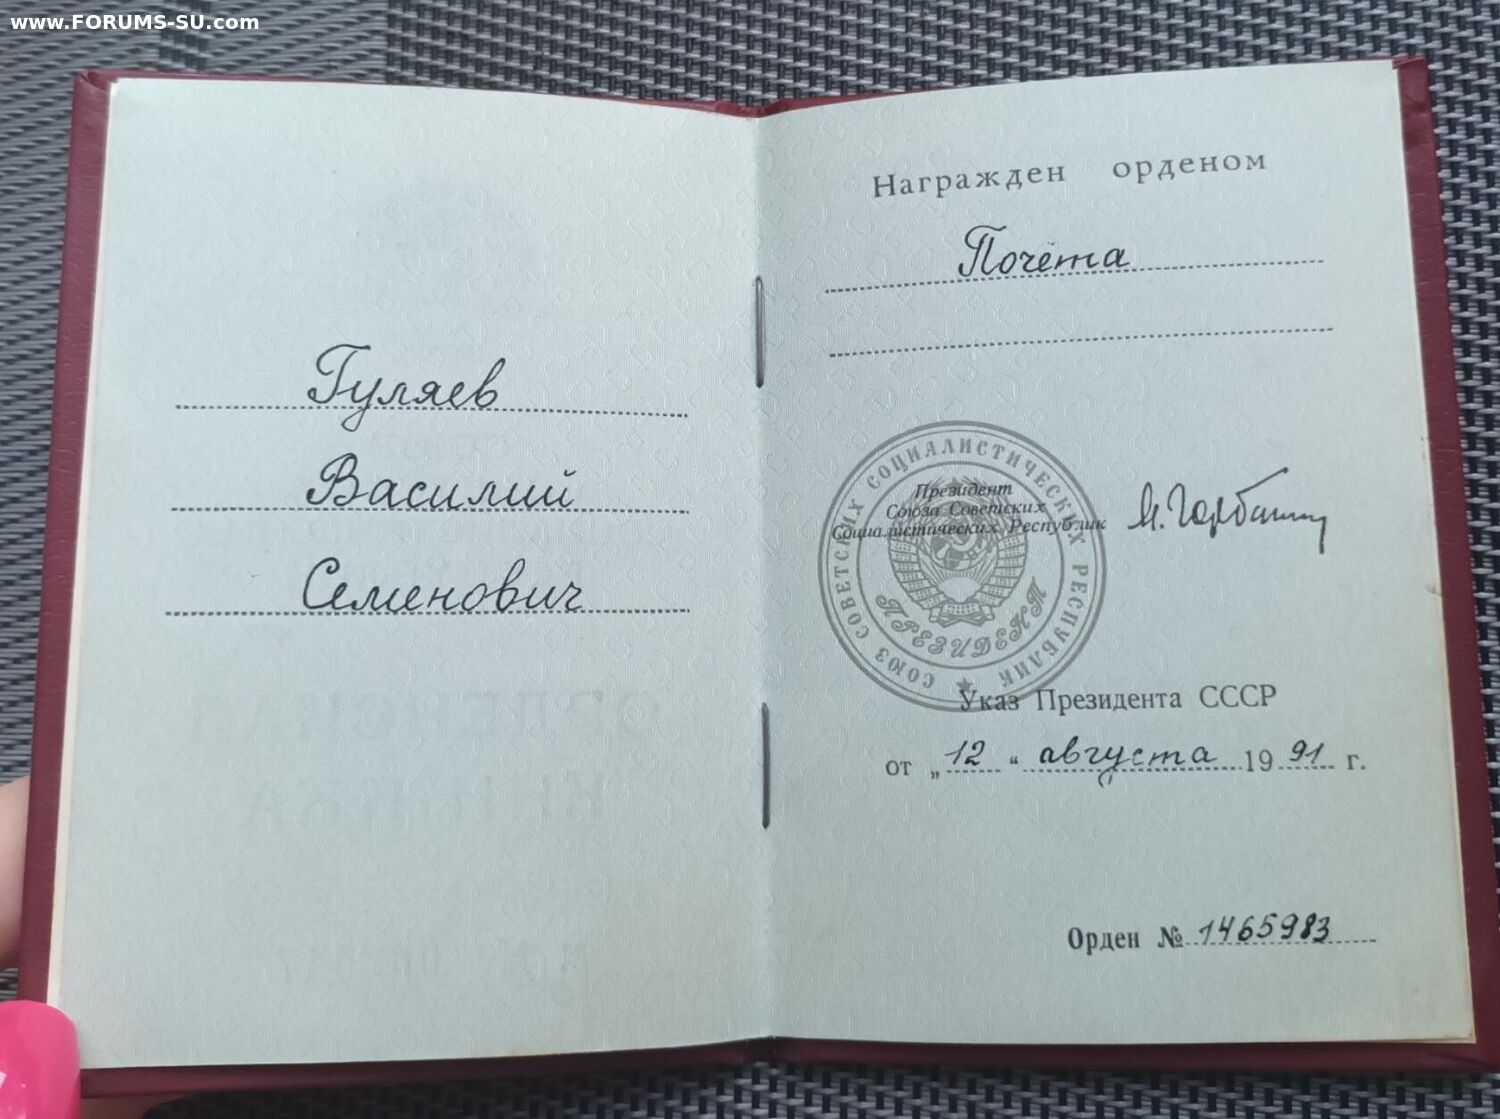 www.FORUMS-SU.com
Гуляев
Василий
Семенович
Награжден орденом
Почёта
СОЮЗ СОВЕТСКИХ СОЦИАЛИСТИЧЕСКИХ РЕСПУБЛИК
Президент
Союза Советских
Социалистических Республик
М. Горбачев
ПРЕЗИДЕНТ
Указ Президента СССР
от „12“ августа 1991 г.
Орден № 1465983